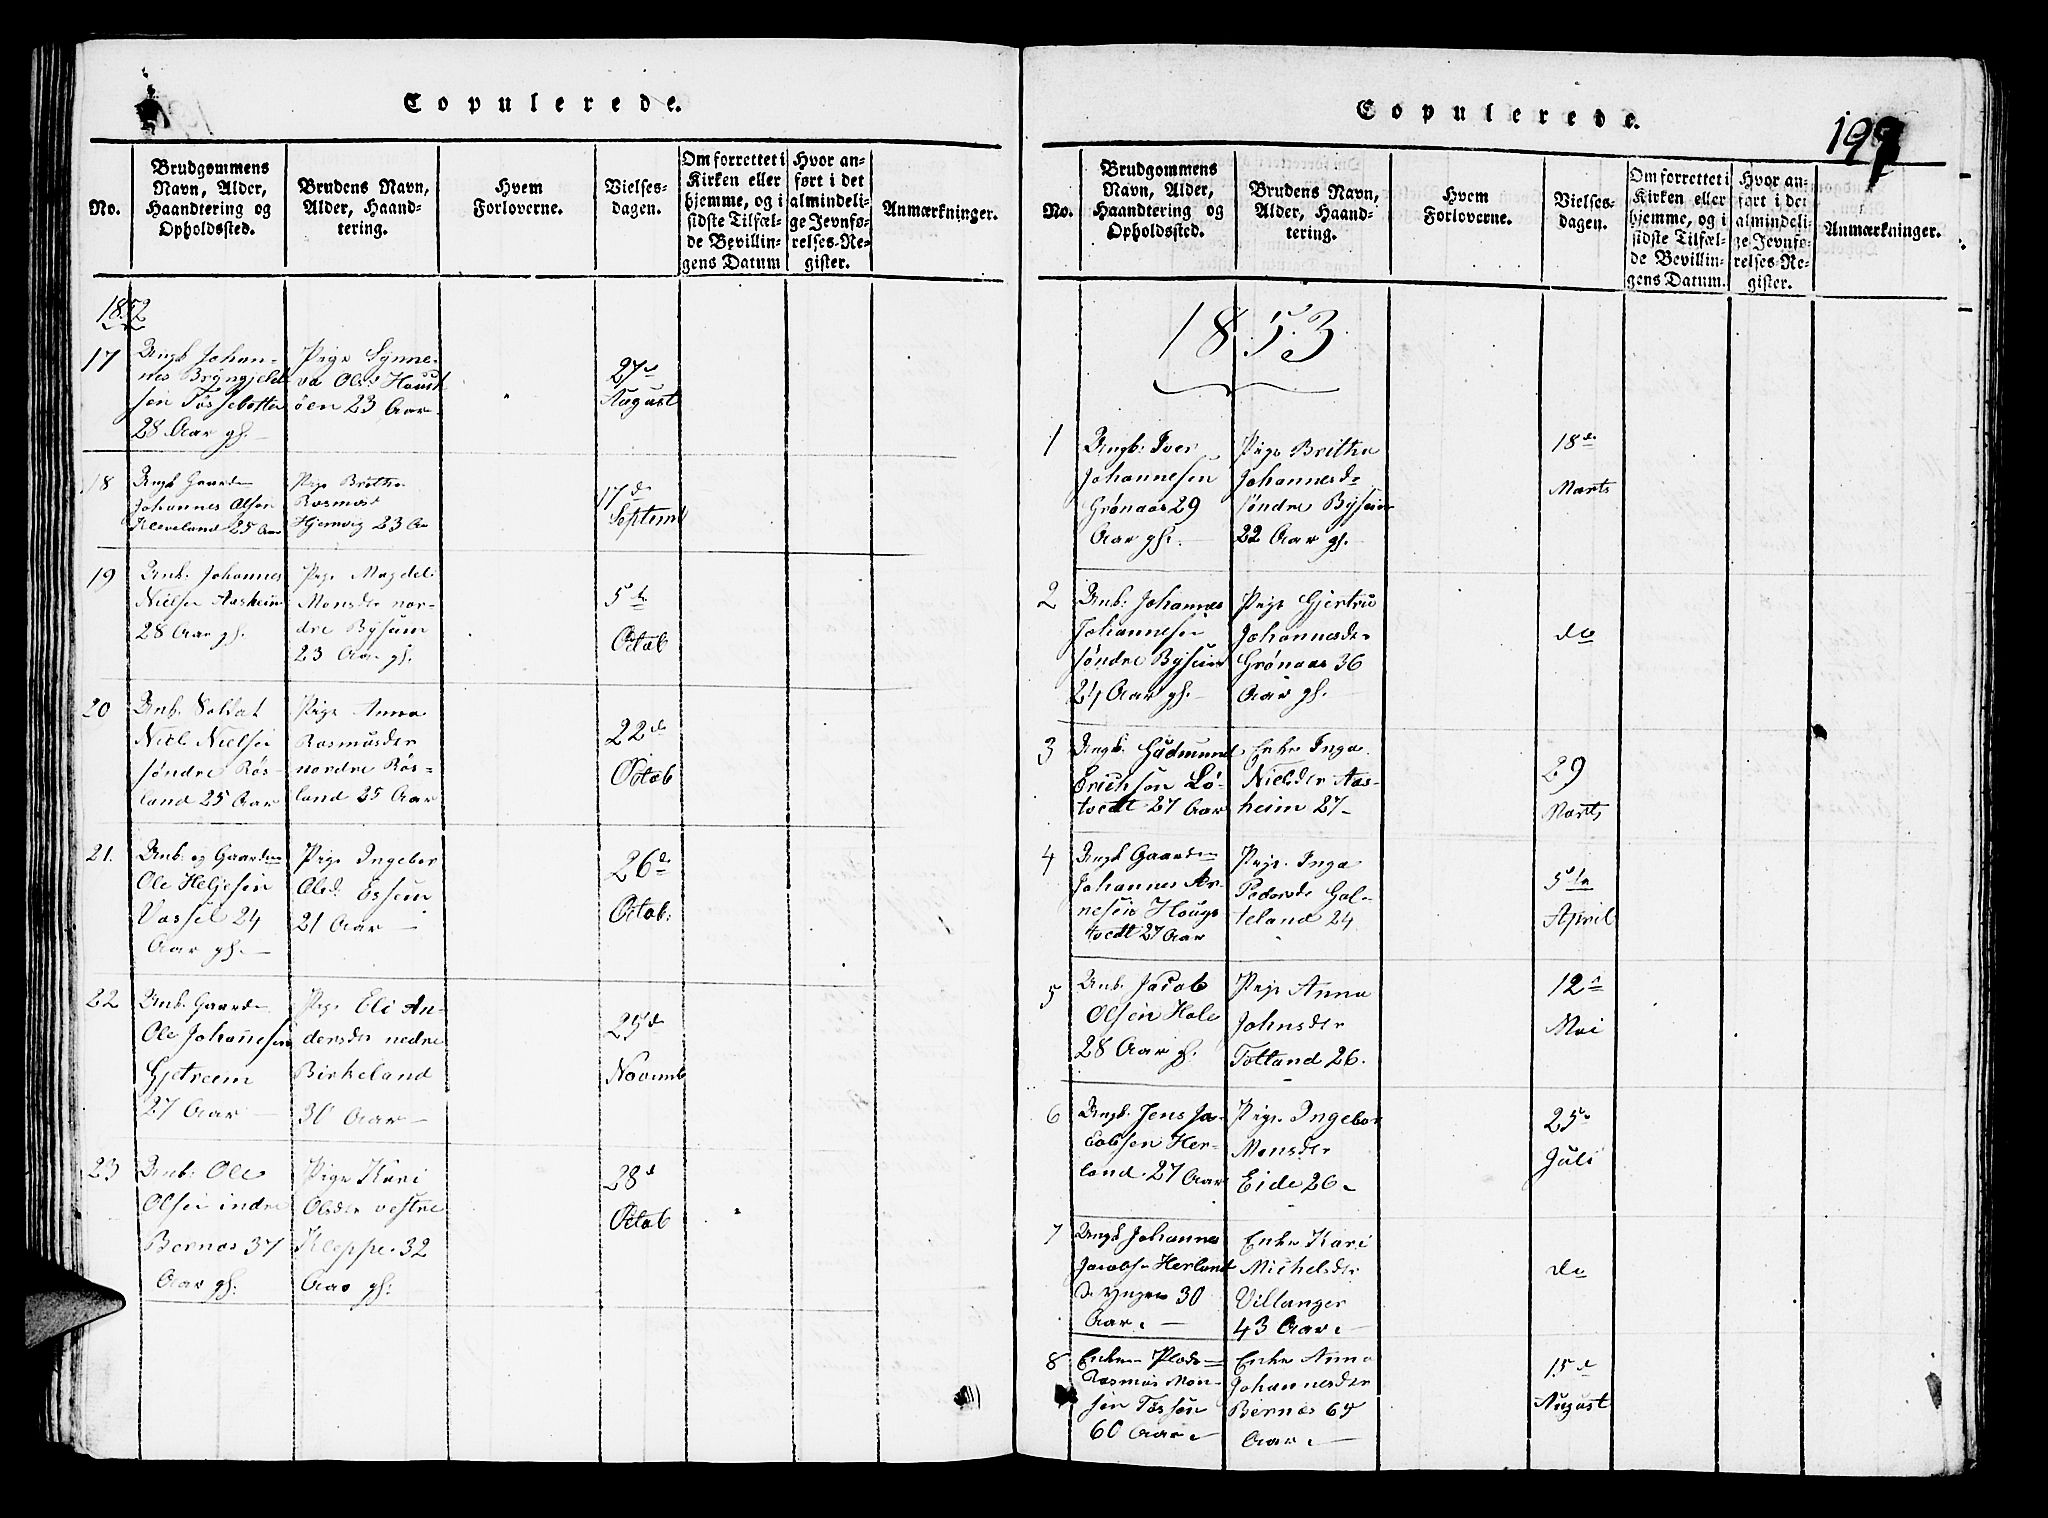 Copulerede.
No.
Brudgommens
Navn, Alder,
Haandtering og
Opholdssted.
Brudens Navn,
Alder, Haand-
tering.
Hvem
Forloverne.
Vielses-
dagen.
Om forrettet i
Kirken eller
hjemme, og i
sidste Tilfæl-
de Bevillin-
gens Datum
Hvor an-
ført i det
almindeli-
ge Jevnfø-
relses-Re-
gister.
Anmærkninger.
1852
17
Ungk Johan-
nes Bryngjeld
sen Tossebotten
28 Aar gl. —
Pige Synne-
va Olsd
öen 23 Aar
27de
August
18
Ungk Gaardm
Johannes Olsen
Kleveland 25 Aar
Pige Britha
Rasmusd
Hjemvig 23 Aar
17de
Septemb
19
Unk. Johannes
Nielsen Aasheim
28 Aar gl.
Pige Magdeli
Monsder nor-
dre Bysum
23 Aar gl.
5te
Octob
20
Unb. Soldat
Niels Nielsen
søndre Røs-
land 25 Aar
Pige Anna
Rasmusder
nordre Røs-
land 25 Aar
22de
Octob
21.
Unb. og Gaardm
Ole Heljesen
Vassel 24
Aar gl. —
Pige Ingebor
Olsd. Essem
21 Aar —
26de
Octob.
22
Unb. Gaardm
Ole Johannesen
Gjetreim
27 Aar —
Pige Eli An-
dersder nedre
Birkeland
30 Aar —
25de
Novemb
23
Unb: Ole
Olsen indre
Bernes 37
Aar gl.
Pige Kari
Olsder vestre
Kleppe 32
Aar gl.
28de
Octob
Copulerede.
197
No.
Brudgommens
Navn, Alder,
Haandtering og
Opholdssted.
Brudens Navn,
Alder, Haand-
tering.
Hvem
Forloverne.
Vielses-
dagen.
Om forrettet i
Kirken eller
hjemme, og i
sidste Tilfæl-
de Bevillin-
gens Datum.
Hvor an-
ført i det
almindeli-
ge Jevnfø-
relses-Re-
gister.
Anmærkninger.
1853
1
Ungk: Iver
Johannesen
Grönaas 29
Aar gl. —
Pige Britha
Johannesde
söndre Bysein
22 Aar gl.
18de
Marts
2
Unb: Johannes
Johannesen
söndre Bysein
24 Aar gl. —
Pige Gjertru
Johannesder
Grönaas 36
Aar gl. —
do
3
Ungk. Gudmund
Erichsen Lö-
tvedt 27 Aar
Enke Inga
Nielsder Aas-
heim 27 —
29
Marts
4
Ungk Gaardm
Johannes Ar-
nesen Houg-
tvedt 27 Aar
Pige Inga
Pedersde Hol-
teland 24
5te
April
5
Unb. Jacob
Olsen Hole
28 Aar gl.
Pige Anna
Johnsder
Totland 26.
12te
Mai
6
Ungk. Jens Ja-
cobsen Her-
land 27 Aar
Pige Ingebor
Monsder
Eide 26 —
25de
Juli
7
Ungk Johannes
Jacobsen Herland
d. yngre 30
Aar. —
Enke Kari
Michelsder
Villanger
43 Aar. —
do
8
Enkem Plads
Rasmus Mon-
sen Tössen
60 Aar —
Enke Anna
Johannesder
Bernes 64
Aar. —
15de
August